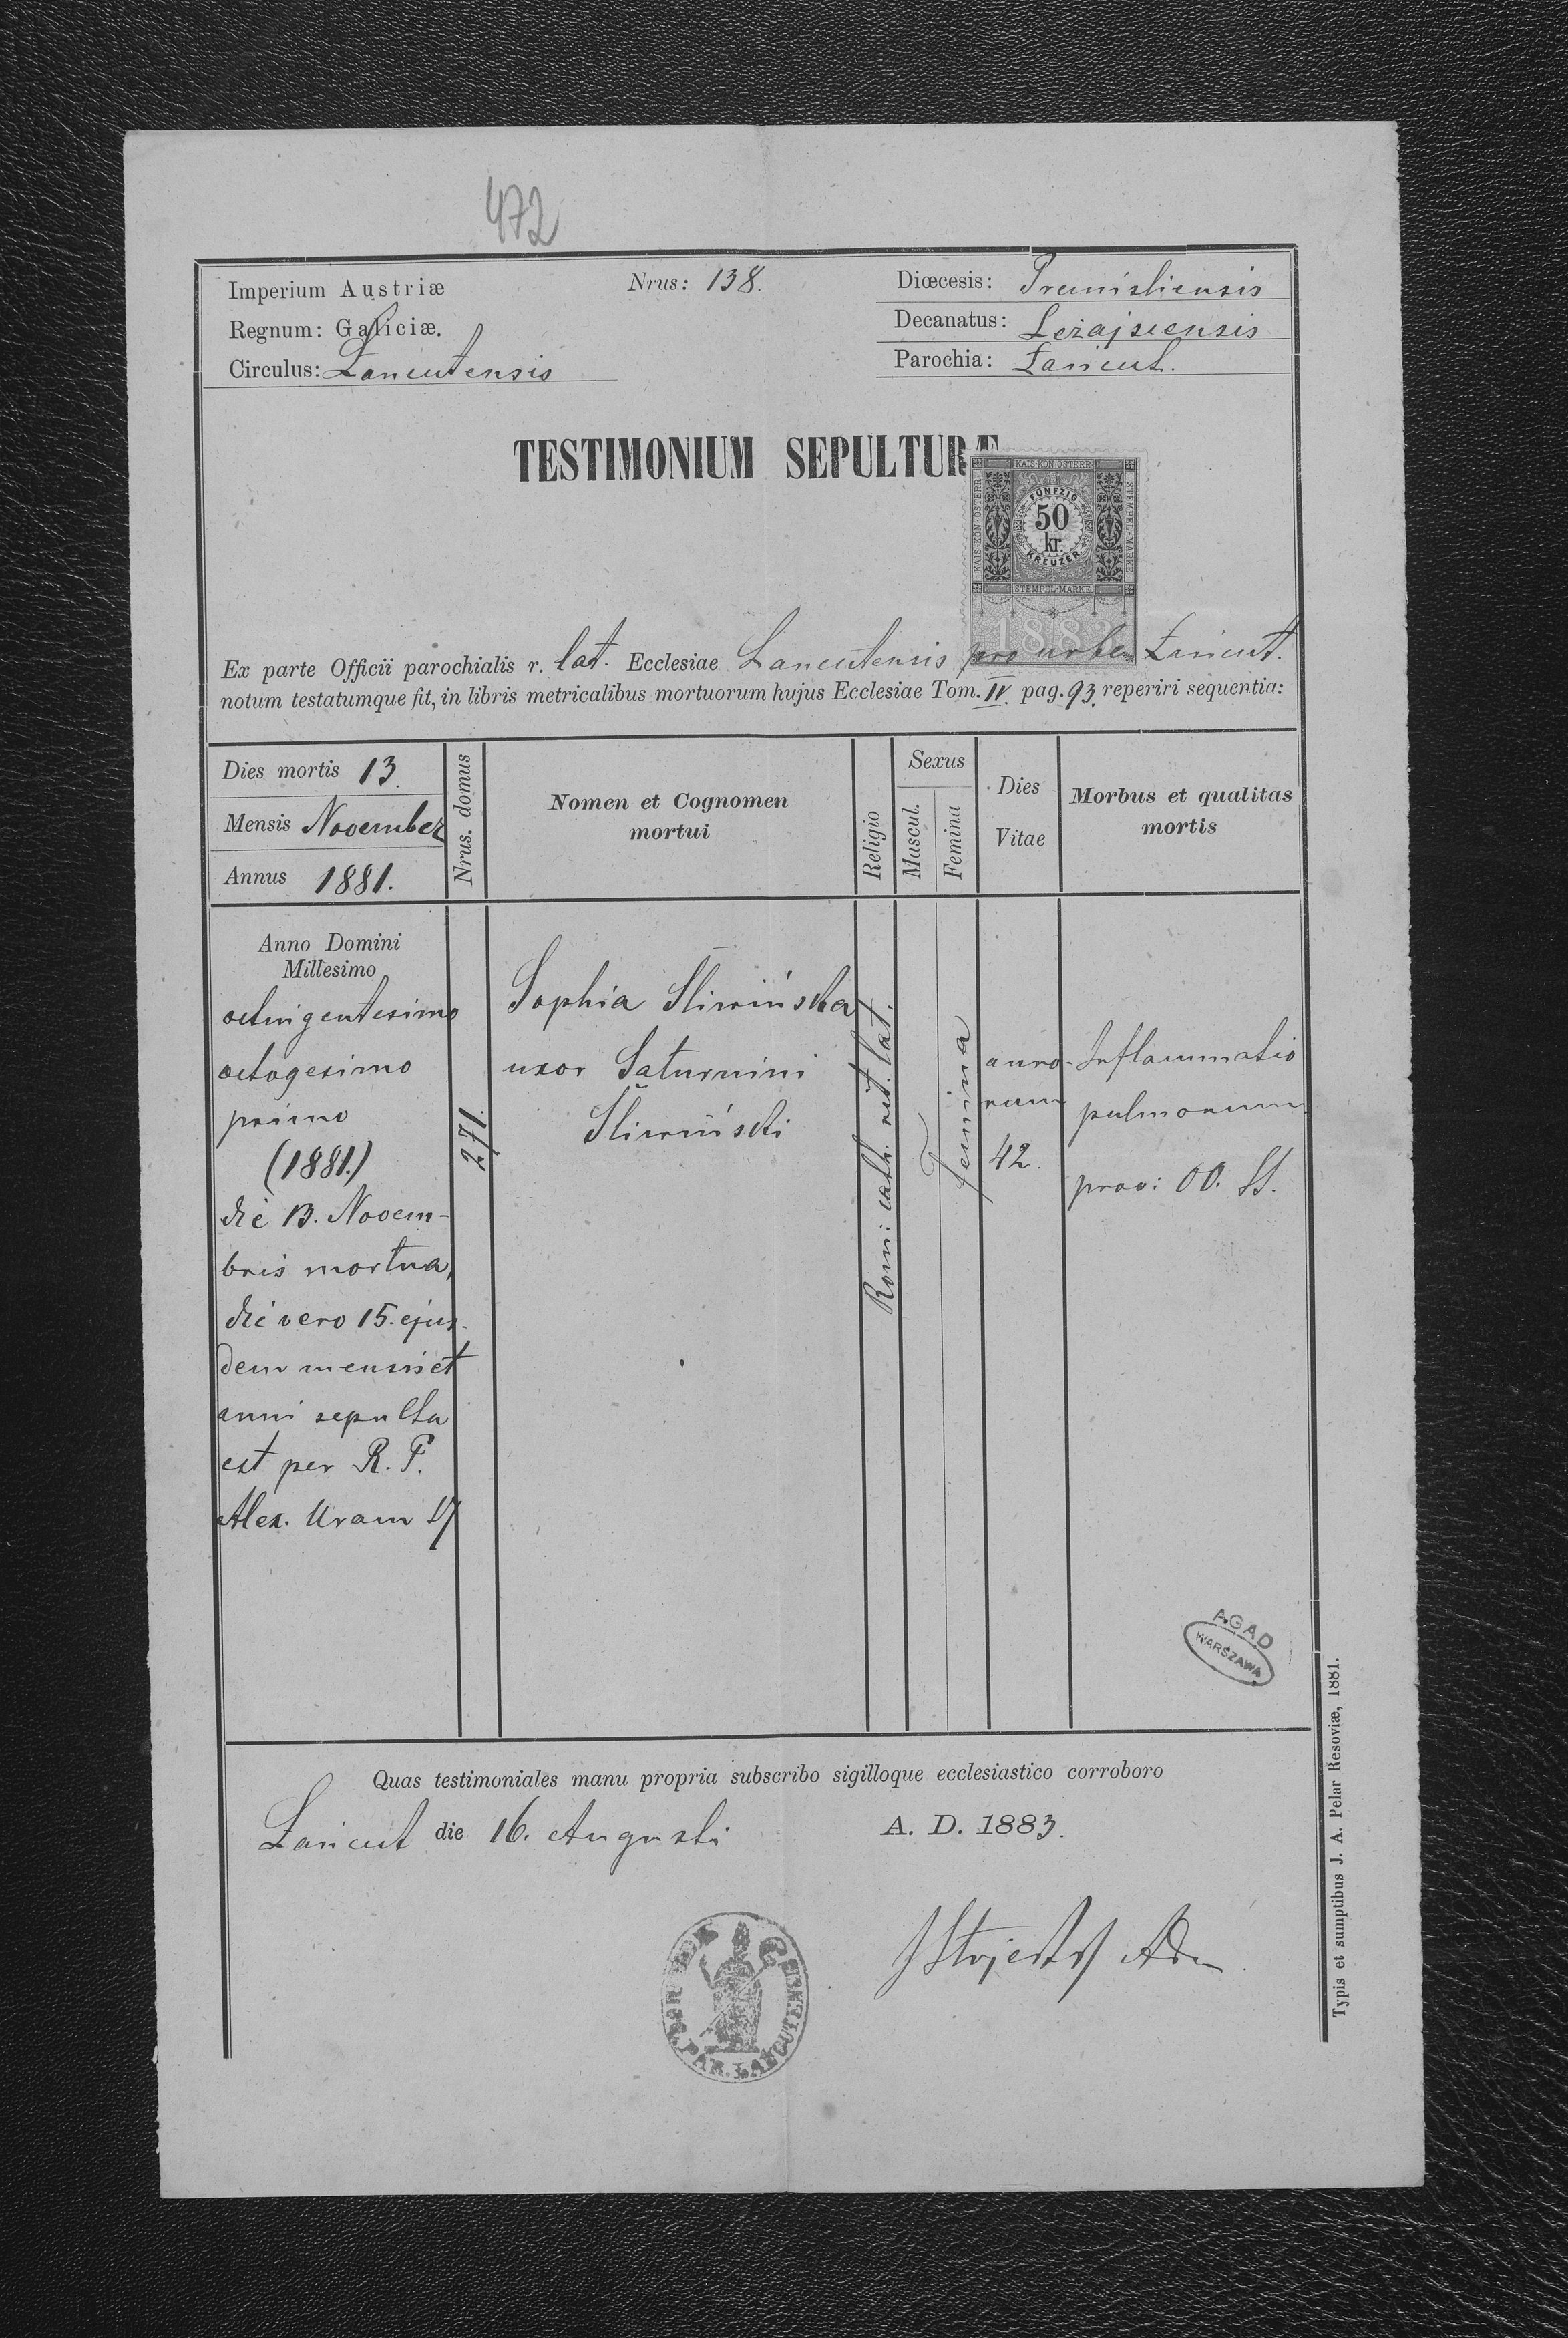 472
Imperium Austriæ
Nrus: 138.
Diœcesis: Premisliensis
Regnum: Galiciæ.
Decanatus: Leżajscensis
Circulus: Łancutensis
Parochia: Łańcut.
TESTIMONIUM SEPULTURÆ
KAIS·KÖN·ÖSTERR
KAIS·KÖN·ÖSTERR·
STEMPEL-MARKE
FÜNFZIG
50
kr.
KREUZER
STEMPEL-MARKE
1883
Ex parte Officii parochialis r. lat. Ecclesiae Łancutensis pro urbe Łańcut.
notum testatumque fit, in libris metricalibus mortuorum hujus Ecclesiae Tom. IV. pag. 93. reperiri sequentia:
Dies mortis 13.
Mensis November
Annus 1881.
Nrus. domus
Nomen et Cognomen
mortui
Religio
Sexus
Muscul.
Femina
Dies
Vitae
Morbus et qualitas
mortis
Anno Domini
Millesimo
octingentesimo
octogesimo
primo
(1881.)
die 13. Novem-
bris mortua,
die vero 15. ejus-
dem mensis et
anni sepulta
est per R. P.
Alex. Uram
271.
Sophia Śliwińska
uxor Saturnini
Śliwiński
Rom: cath. rit. lat.
femina
anno-
rum
42.
Inflammatio
pulmonum
prov: OO. SS.
AGAD
WARSZAWA
Quas testimoniales manu propria subscribo sigilloque ecclesiastico corroboro
Łańcut die 16. Augusti A. D. 1883.
PAR. LANCUTEN
Typis et sumptibus J. A. Pelar Resoviæ, 1881.